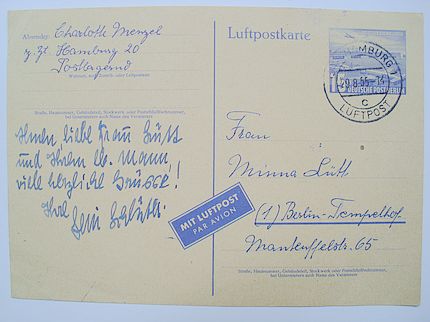 Absender: Charlotte Menzel
z. Zt. Hamburg 20
Postlagernd
Wohnort, auch Zustell- oder Leitpostamt
Straße, Hausnummer, Gebäudeteil, Stockwerk oder Postschließfachnummer,
bei Untermietern auch Name des Vermieters
Ihnen, liebe Frau Lütt
und Ihrem lb. Mann,
viele herzliche Grüsse!
Ihre
Luftpostkarte
HAMBURG 1
29.8.55-14
c
LUFTPOST
15
DEUTSCHE POST BERLIN
Frau
Minna Lütt
(1) Berlin-Tempelhof
Manteuffelstr. 65
MIT LUFTPOST
PAR AVION
Straße, Hausnummer, Gebäudeteil, Stockwerk oder Postschließfachnummer,
bei Untermietern auch Name des Vermieters